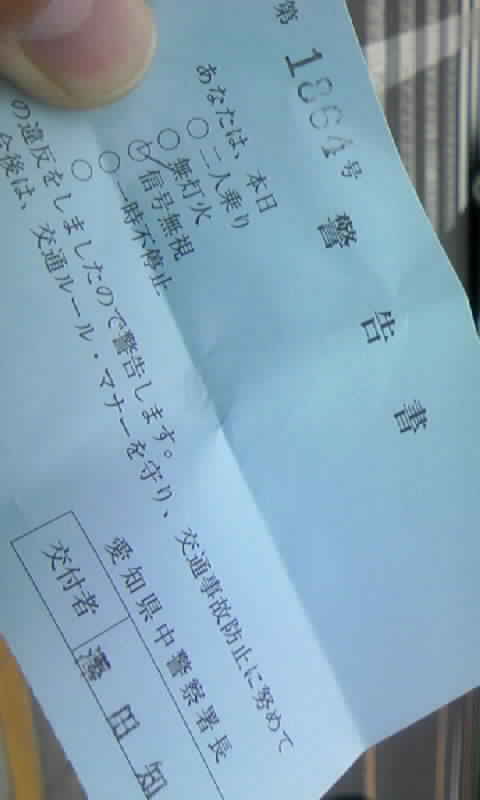 第 1864 号
警告書
あなたは、本日
○ 二人乗り
○ 無灯火
○ 信号無視
○ 一時不停止
○
の違反をしましたので警告します。
今後は、交通ルール・マナーを守り、交通事故防止に努めて
愛知県中警察署長
交付者 澤田知